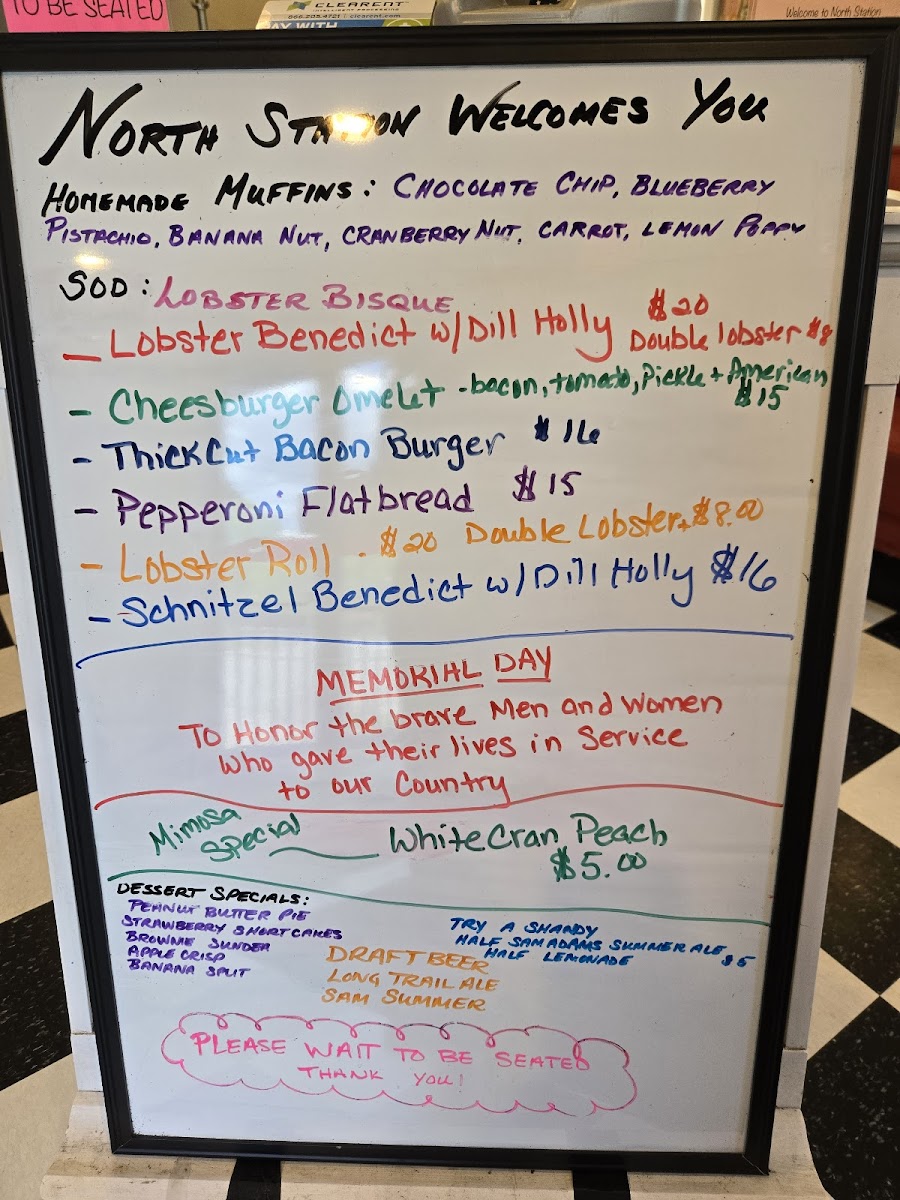 TO BE SEATED
CLEARENT
INTELLIGENT PROCESSING
866.205.4721 | clearent.com
PAY WITH
Welcome to North Station
NORTH STATION WELCOMES YOU
HOMEMADE MUFFINS: CHOCOLATE CHIP, BLUEBERRY
PISTACHIO, BANANA NUT, CRANBERRY NUT, CARROT, LEMON POPPY
SOD: LOBSTER BISQUE
- Lobster Benedict w/Dill Holly $20
Double lobster $8
- Cheesburger Omelet - bacon, tomato, Pickle + American
$15
- Thick Cut Bacon Burger $16
- Pepperoni Flatbread $15
- Lobster Roll . $20 Double Lobster + $8.00
- Schnitzel Benedict w/Dill Holly $16
MEMORIAL DAY
To Honor the brave Men and Women
who gave their lives in Service
to our Country
Mimosa
Special
White Cran Peach
$5.00
DESSERT SPECIALS:
PEANUT BUTTER PIE
STRAWBERRY SHORTCAKES
BROWNIE SUNDEA
APPLE CRISP
BANANA SPLIT
DRAFT BEER
LONG TRAIL ALE
SAM SUMMER
TRY A SHANDY
HALF SAM ADAMS SUMMER ALE
HALF LEMONADE $5
PLEASE WAIT TO BE SEATED
THANK YOU!